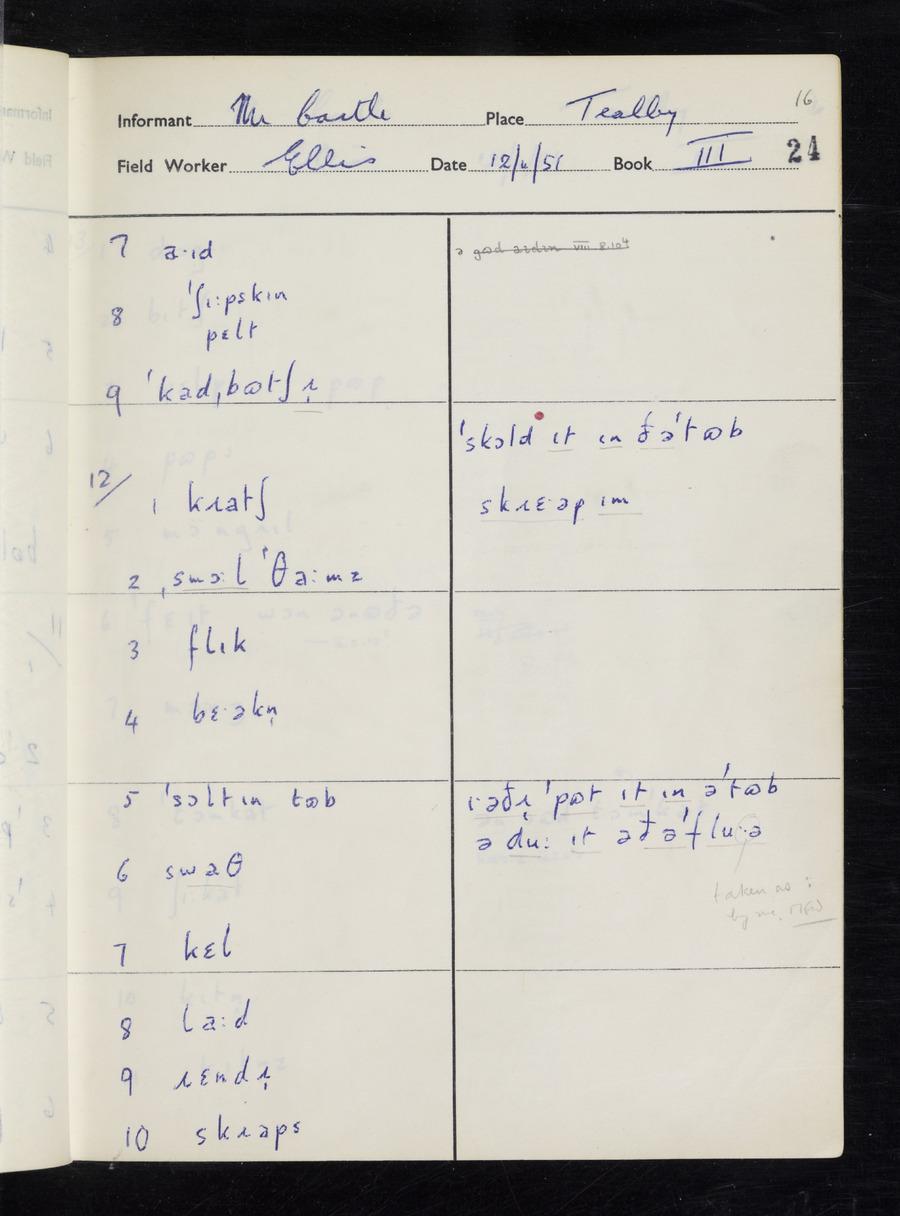 16
Informant Mr Castle Place Tealby
Field Worker Ellis Date 12/4/51 Book III 24
7 a·ɪd
8 ˈʃɪ:pskɪn
pɛlt
9 ˈkadˌbʊtʃɪ̣
12/
1 kɹatʃ
2 ˌsmɔ:l ˈθa:mz
3 flɪk
4 bɛ·əkn̩
5 ˈsɔltɪn tʊb
6 swaθ
7 kɛl
8 la:d
9 ɹɛndɹ̩
10 skɹaps
ə gʊd VIII 8.10⁴
ˈskɔld ɪt ɪn ðəˈtʊb
skɹɛ·əp ɪm
i·əðɹ̩ ˈpʊt ɪt ɪn əˈtʊb
ə du: ɪt ə ðəˈflu·ə
taken as :
by me.